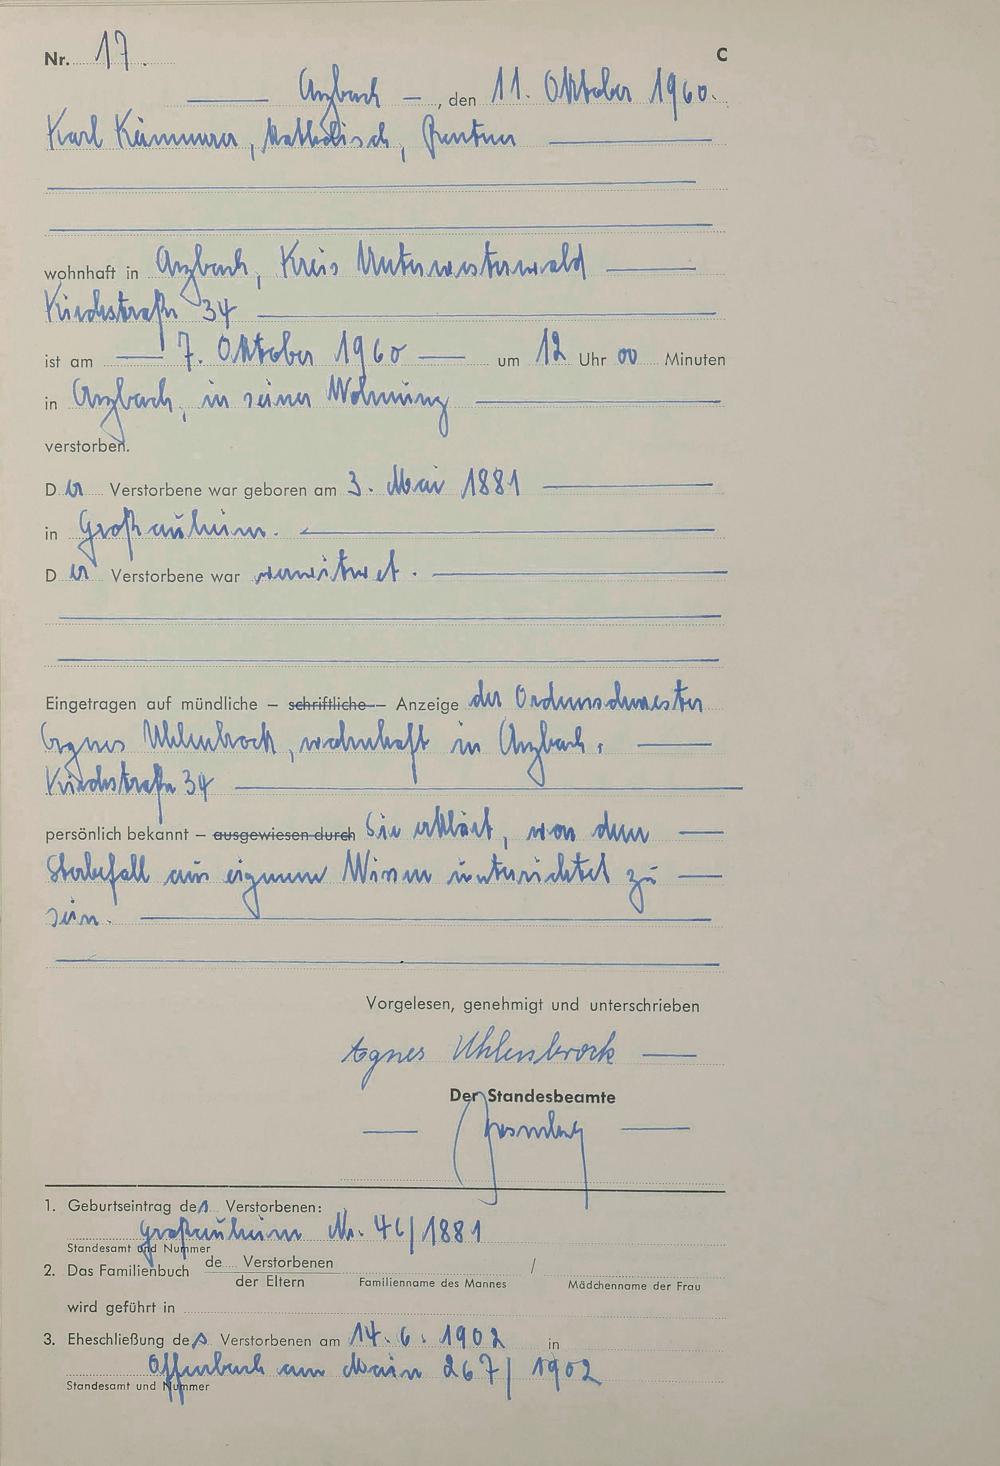 Nr. 17. C
Arzbach, den 11. Oktober 1960.
Karl Kämmerer, katholisch, Rentner
wohnhaft in Arzbach, Kreis Unterwesterwald
Kirchstraße 34
ist am 7. Oktober 1960 um 12 Uhr 00 Minuten
in Arzbach, in seiner Wohnung
verstorben.
D er Verstorbene war geboren am 3. Mai 1881
in Großauheim.
D er Verstorbene war verwitwet.
Eingetragen auf mündliche – schriftliche – Anzeige der Ordensschwester
Agnes Uhlenbrock, wohnhaft in Arzbach,
Kirchstraße 34
persönlich bekannt – ausgewiesen durch Sie erklärt, von dem
Sterbefall aus eigenem Wissen unterrichtet zu
sein.
Vorgelesen, genehmigt und unterschrieben
Agnes Uhlenbrock
Der Standesbeamte
1. Geburtseintrag des Verstorbenen:
Großauheim Nr. 46/1881
Standesamt und Nummer
2. Das Familienbuch de Verstorbenen /
der Eltern Familienname des Mannes Mädchenname der Frau
wird geführt in
3. Eheschließung des Verstorbenen am 14.6.1902 in
Offenbach am Main 267/1902
Standesamt und Nummer